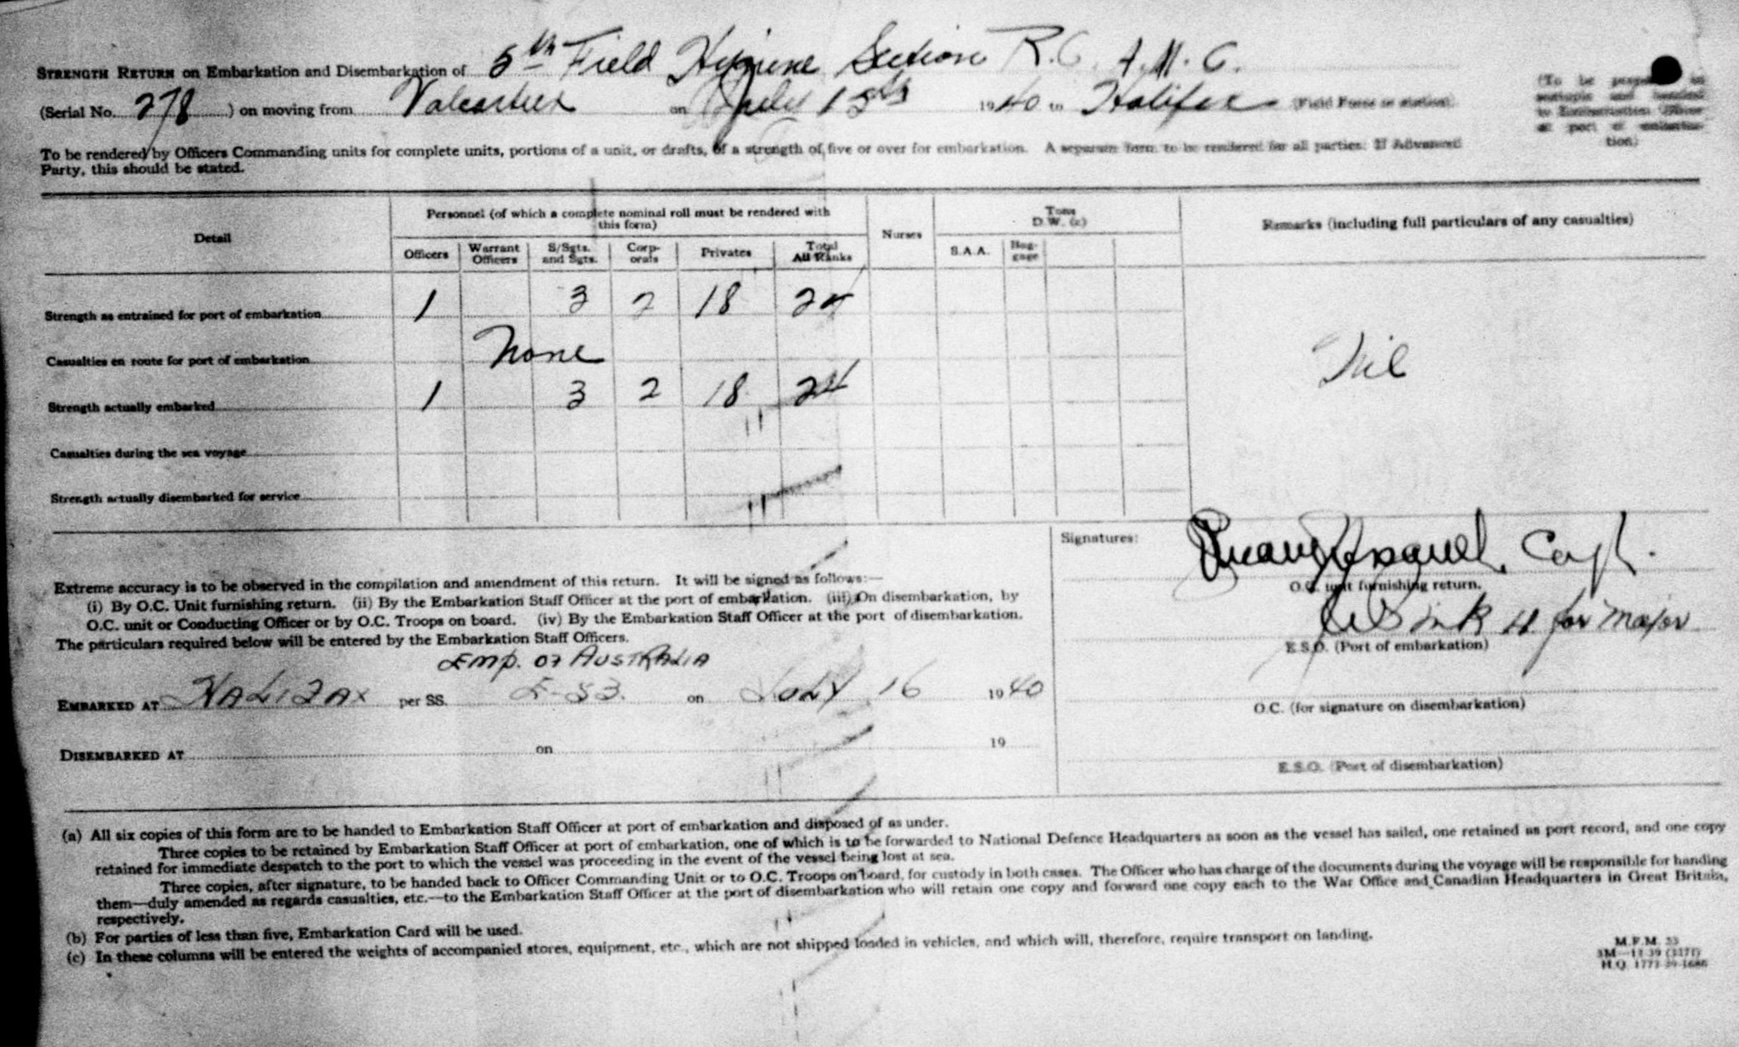 STRENGTH RETURN on Embarkation and Disembarkation of 5th Field Hygiene Section R.C. A.M.C.
(Serial No. 278 ) on moving from Valcartier on July 15th 1940 to Halifax (Field Force or station).
(To be prepared in
sextuple and handed
to Embarkation Officer
at port of embarka-
tion)
To be rendered by Officers Commanding units for complete units, portions of a unit, or drafts, of a strength of five or over for embarkation. A separate form to be rendered for all parties. If Advanced
Party, this should be stated.
Detail
Personnel (of which a complete nominal roll must be rendered with
this form)
Nurses
Tons
D.W. (c)
Remarks (including full particulars of any casualties)
Officers Warrant Officers S/Sgts. and Sgts. Corp-orals Privates Total All Ranks S.A.A. Bag-gage
Strength as entrained for port of embarkation 1 3 2 18 24
Casualties en route for port of embarkation None
Nil
Strength actually embarked 1 3 2 18 24
Casualties during the sea voyage
Strength actually disembarked for service
Signatures:
Capt.
O.C. unit furnishing return.
for Major
E.S.O. (Port of embarkation)
O.C. (for signature on disembarkation)
E.S.O. (Port of disembarkation)
Extreme accuracy is to be observed in the compilation and amendment of this return. It will be signed as follows:—
(i) By O.C. Unit furnishing return. (ii) By the Embarkation Staff Officer at the port of embarkation. (iii) On disembarkation, by
O.C. unit or Conducting Officer or by O.C. Troops on board. (iv) By the Embarkation Staff Officer at the port of disembarkation.
The particulars required below will be entered by the Embarkation Staff Officers.
EMP. OF AUSTRALIA
EMBARKED AT HALIFAX per SS. E-53. on JULY 16 1940
DISEMBARKED AT on 19
(a) All six copies of this form are to be handed to Embarkation Staff Officer at port of embarkation and disposed of as under.
Three copies to be retained by Embarkation Staff Officer at port of embarkation, one of which is to be forwarded to National Defence Headquarters as soon as the vessel has sailed, one retained as port record, and one copy
retained for immediate despatch to the port to which the vessel was proceeding in the event of the vessel being lost at sea.
Three copies, after signature, to be handed back to Officer Commanding Unit or to O.C. Troops on board, for custody in both cases. The Officer who has charge of the documents during the voyage will be responsible for handing
them—duly amended as regards casualties, etc.—to the Embarkation Staff Officer at the port of disembarkation who will retain one copy and forward one copy each to the War Office and Canadian Headquarters in Great Britain,
respectively.
(b) For parties of less than five, Embarkation Card will be used.
(c) In these columns will be entered the weights of accompanied stores, equipment, etc., which are not shipped loaded in vehicles, and which will, therefore, require transport on landing.
M.F.M. 33
3M—11-39 (3371)
H.Q. 1772-39-1686